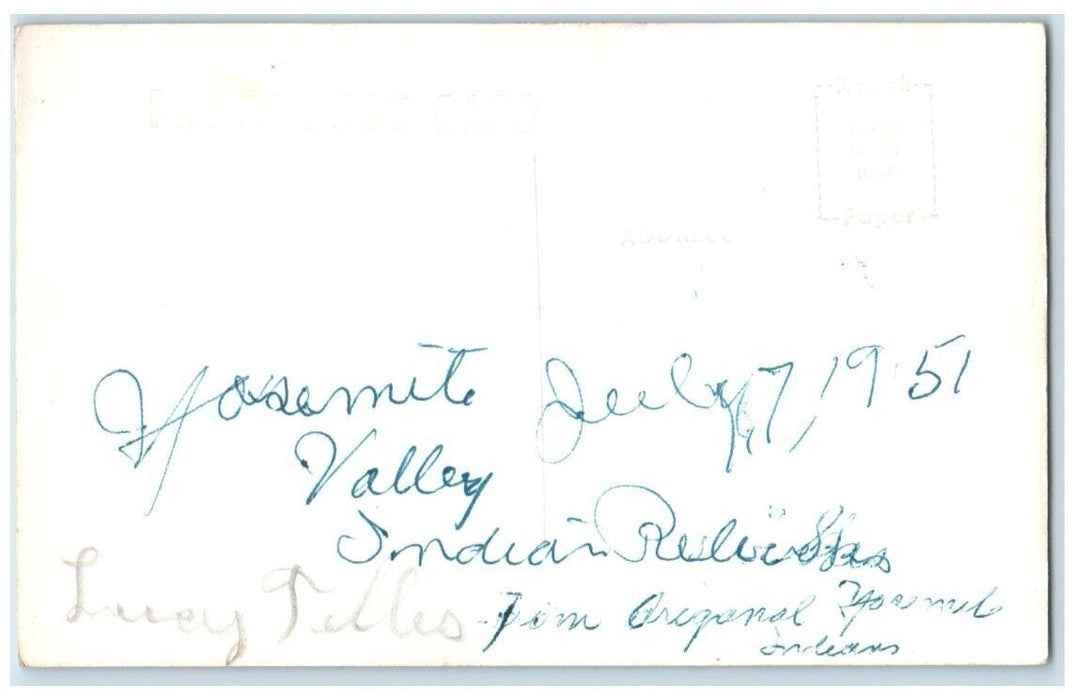 PHOTO POST CARD
Kodak
PLACE
STAMP
HERE
Paper
ADDRESS
Yosemite July 7, 1951
Valley
Indian
Lucy Telles
Origanal Yosmite
Indians